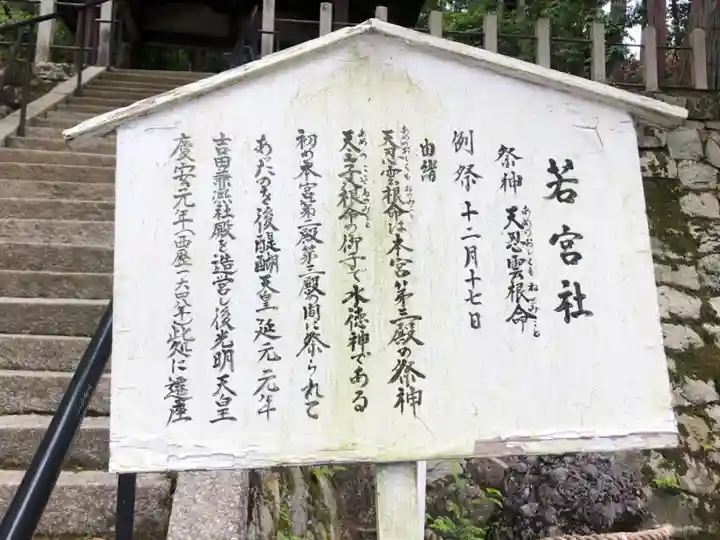 若宮社
祭神 天忍雲根命
例祭 十二月十七日
由緒
天忍雲根命は本宮第三殿の祭神
天之子八根命の御子で水徳神である
初め本宮第二殿第三殿の間に祭られて
あったのを後醍醐天皇延元元年
吉田兼熙社殿を造営し後光明天皇
慶安元年(西歴一六四八年)此処に遷座